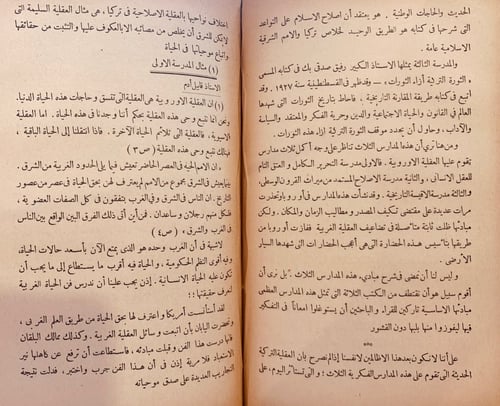 الحديث والحاجات الوطنية . هو يعتقد أن إصلاح الاسلام على القواعد
التي شرحها في كتابه هو الطريق الوحيد لخلاص تركيا والامم الشرقية
الاسلامية عامة .
والمدرسة الثالثة يمثلها الاستاذ الكبير رفيق صدقي بك في كتابه المسمى
« الثورة التركية أزاء الثورات » — وقد ظهر في القسطنطينية سنة ١٩٢٧ وقد
أتبع في كتابه طريقة المقارنة التاريخية ، فأحاط بتاريخ الثورات التي شهدها
العالم في القانون والحياة الاجتماعية والدين وحرية الفكر والمعتقد والسياسة
والآداب ، وحاول أن يحدد موقف الثورة التركية أزاء هذه الثورات .
ومن هنا نرى أن هذه المدارس الثلاث تناظر على وجه أكمل ثلاث مدارس
تقوم عليها العقلية الاوروبية . فالأولى مدرسة التحرير الكامل و العتق التام
للعقل الانساني ، والثانية مدرسة الاصلاح المستمد من ميراث القرون الوسطى ،
والثالثة مدرسة الاقيسة التاريخية . وقد نشأت هذه المدارس في أوروبا وتحورت
مرات عديدة على مقتضى تكيف المصدر ومطالب الزمان والمكان . ولكن
مبادئها ظلت ثابتة متأصلة في تضاعيف العقلية الغربية ففازت أوروبا من
طريقها بتأسيس هذه الحضارة التي هي أعجب الحضارات التي شهدها سيار
الأرض .
وليس لنا أن نمضي في شرح مبادئ هذه المدارس الثلاث . بل نرى أن
أقوم سبيل هو أن نقتطف من الكتب الثلاثة التي تمثل هذه المدارس العظمى
مبادئها الأساسية تاركين للقراء والباحثين أن يستوغلوا امعاناً في التفكير
فيها ليفوزوا منها بلبها دون القشور
***
على أننا لا نكون بعد هذا الا ظالمين لأنفسنا إذا لم نصرح بأن العقلية التركية
الحديثة التي تقوم على هذه المدارس الفكرية الثلاث ؛ و التي تستأثر اليوم ، على
اختلاف نواحيها بالعقلية الاصلاحية في تركيا ، هي مثال العقلية السليمة التي
لا يمكن للشرق أن يخلص من مصائبه الا بالعكوف عليها والتثبت من حقائقها
واتباع موحياتها في الحياة
(١) مثال المدرسة الاولى
الاستاذ قابيل آدم
(١) ان العقلية الاوروبية هي العقلية التي تتسق وحاجات هذه الحياة الدنيا .
ونحن انما نتبع وحي هذه العقلية بحكم أننا وجدنا في هذه الحياة . اما العقلية
الاسيوية ، فالعقلية التي تلائم الحياة الآخرة . فإذا انتقلنا إلى الحياة الباقية ،
فهنالك نتبع وحي هذه العقلية ( ص ٣ )
. ان الامبراجية في العصر الحاضر تعيش فيما يلي الحدود الغربية من الشرق .
بينما يعيش في الشرق مجموع من الامم لم يعترف لهن بحق الحياة في عصر من عصور
التاريخ . ان الناس في الشرق وفي الغرب يتفقون في كل الصفات العضوية ،
فلكل منهم رجلان وساعدان . فمن أين أتى ذلك الفرق البين الواقع بين الناس
في الغرب والشرق ، ( ص٤ )
لا شبهة في أن الغرب وحده هو الذي يتمتع الآن بأسعد حالات الحياة ،
وفيه أقوى النظم الحكومية ، والحياة فيه أقرب ما يستطاع إلى ما يجب أن
تكون عليه الحياة الانسانية . إذن يجب علينا أن ندرس فن الحياة الغربية
لنعرف حقيقتها !!
لقد استأنست أمريكا واعترف لها بحق الحياة من طريق العلم الغربي ،
وتحضرت اليابان بأن اتبعت وسائل العقلية الغربية . وكذلك مالك البلقان
فانها درست هذا الفن وقبلت مبادئه ، فاستطاعت أن ترفع عن كاهلها نير
الاستعباد فلا مرية إذن في أن هذا الفن جرب واختبر ، فدلت نتيجة
التجاريب العديدة على صدق موحياته